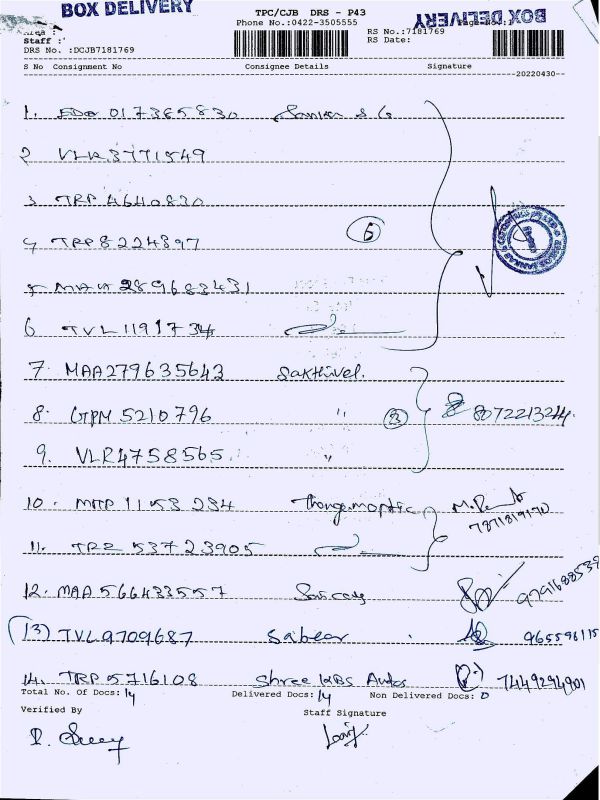 BOX DELIVERY
TPC/CJB DRS - P43
BOX DELIVERY
Phone No.:0422-3505555
Area :
Staff :
RS No.:7181769
DRS No. :DCJB7181769
RS Date:
S No Consignment No Consignee Details Signature
20220430
1. 017365830
2 VLR3771549
3 TRP 4640830
4 TRP8224397
5 MAA 289683431
6 TVL 1191734
7. MAA279635643 Sakthivel.
8. GPM 5210796 " 3 8072213244
9. VLR4758565 "
10. MTP 1153 234 7871819170
11. TRZ 53723905
12. MAA 566433557 9791688539
13) TVL9709687 Sabeer 965596115
14. TRP 5716108 Shree KBS Autos 7449294901
Total No. Of Docs: 14 Delivered Docs: 14 Non Delivered Docs: 0
Verified By Staff Signature